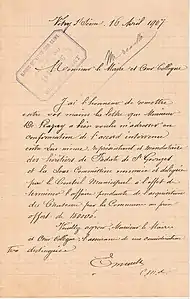 Vitry s/Seine, 16 Avril 1907
Monsieur le Maire et Cher Collègue
J'ai l'honneur de remettre
entre vos mains la lettre que Monsieur
a bien voulu m'adresser en
confirmation de l'accord intervenu
entre lui même, représentant et mandataire
des héritiers de
et la Sous Commission nommée et déléguée
par le Conseil Municipal à l'effet de
terminer l'affaire pendante de l'acquisition
du Château par la Commune au prix
offert de
Veuillez agréer, Monsieur le Maire
et Cher Collègue, l'assurance de ma considération
très distinguée